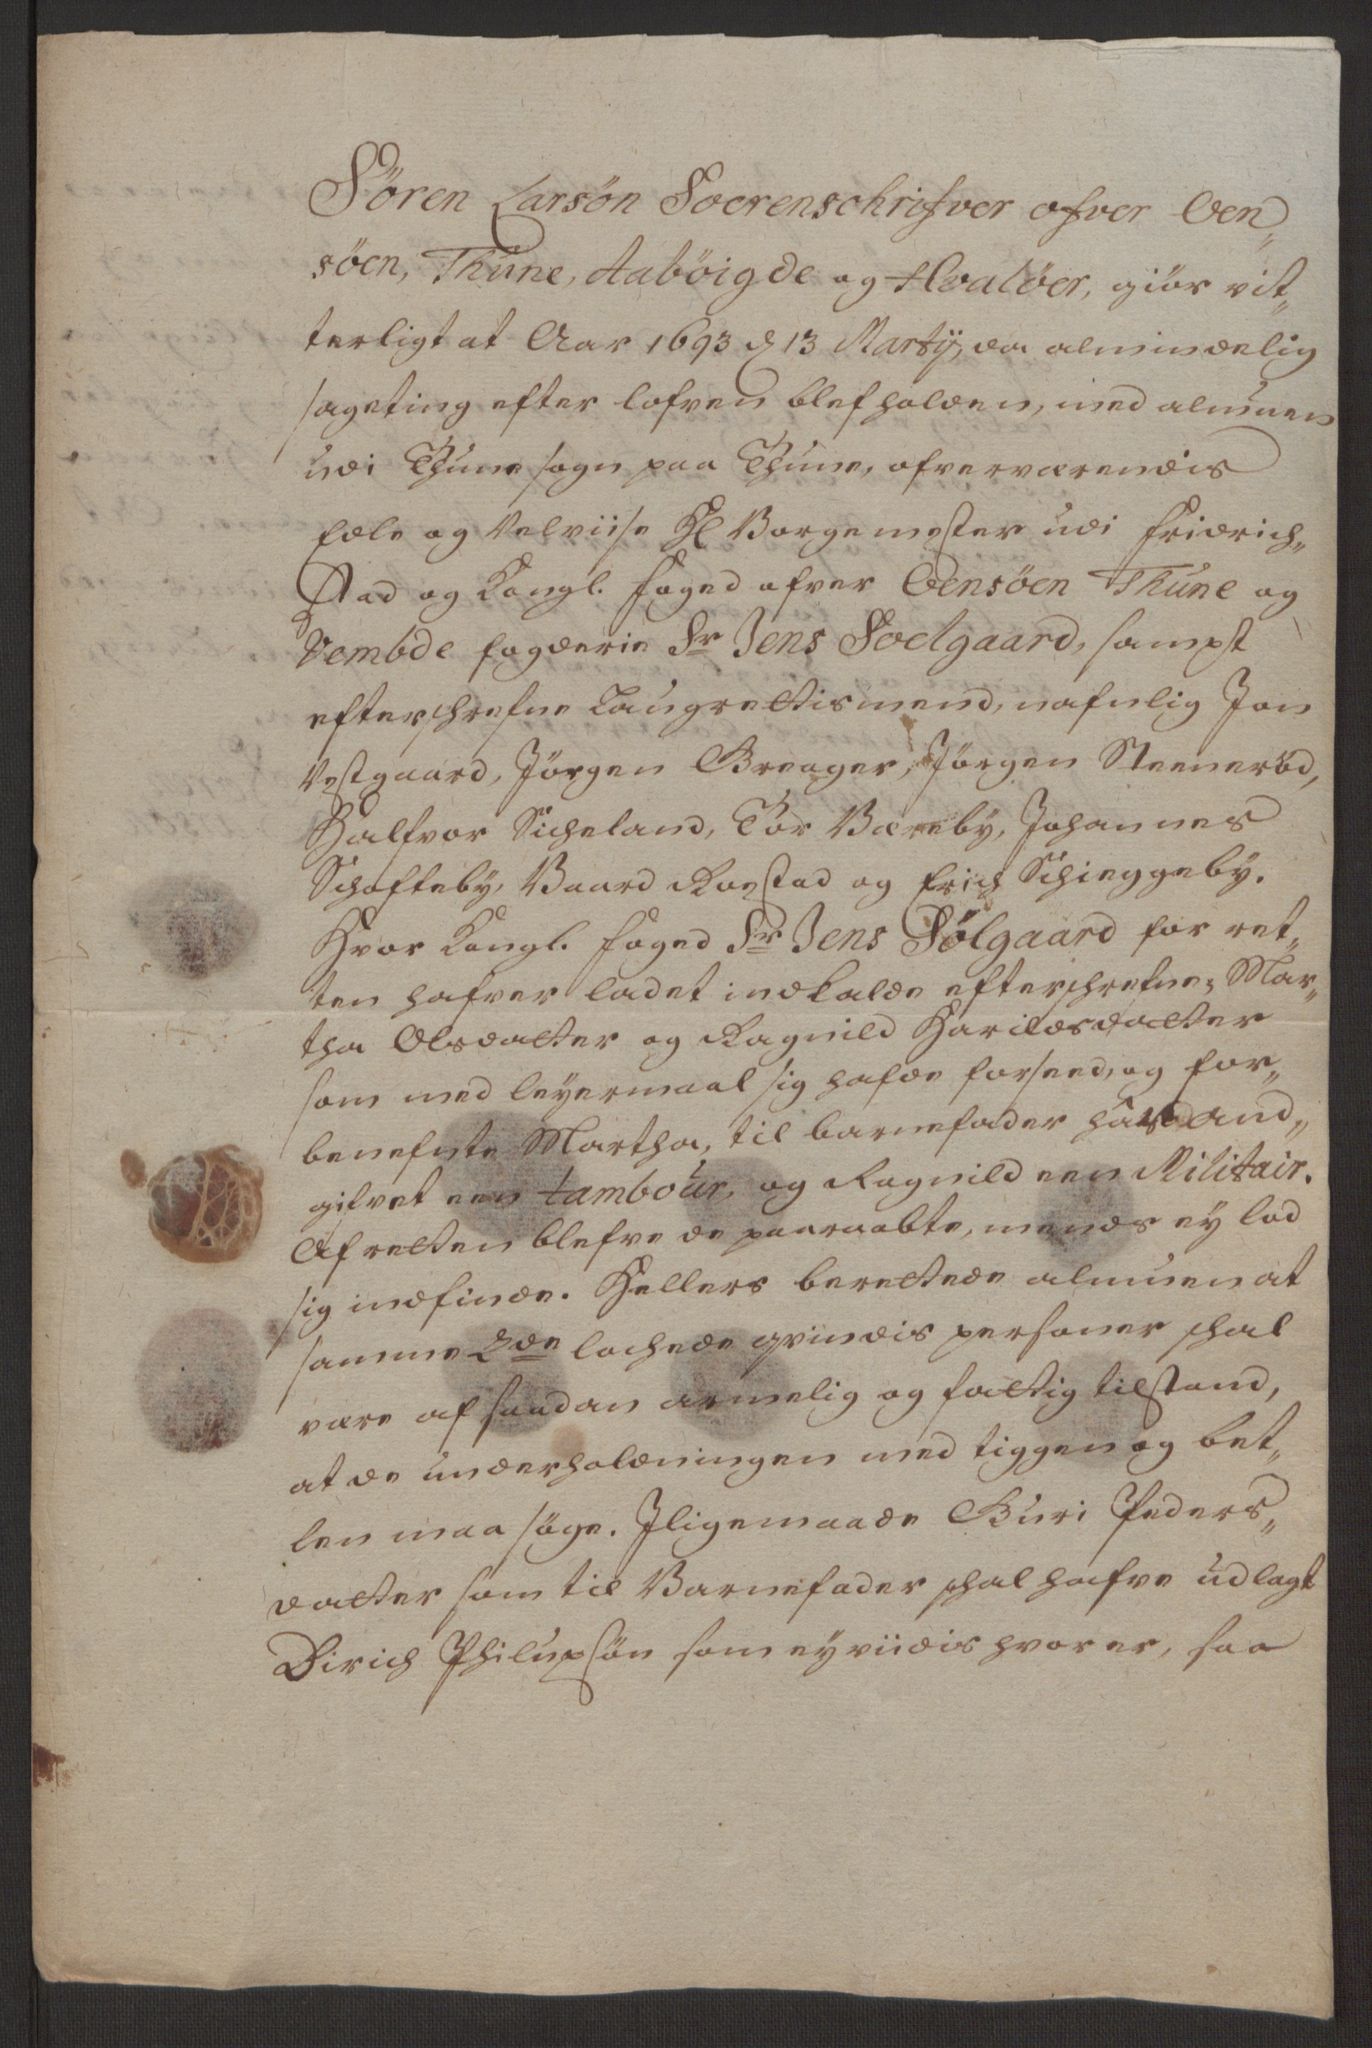 Sören Larsön Soerenschrifver ofver Oen„
söen, Thune, Aaböigde og Hvalöer, giör vit„
terligt at Aar 1693 d 13 Martij, da almindelig
sageting efter lofven blef holden, med almuen
udi Thune sogn paa Thune, ofververærendis
Edle og Velviise Hl Borgemester udi Fridrich„
stad og Kongl. Foged ofver Oensöen Thune og
Vembde fogderie Sr Jens Soelgaard, sampt
efterschrefne Laugrettismend, nafnlig Jon
Vestgaard, Jörgen Greager, Jörgen Steneröd,
Halfvor Sicheland, Tor Bereby, Johannes
Schofteby, Baard Roestad og Erich Schinggeby.
Hvor Kongl. Foged Sr Jens Sölgaard for ret„
ten hafver ladet indkalde efterschrefne; Mar„
tha Olsdatter og Ragnild Harildsdatter
som med leyermaal sig hafde forseed, og for„
benefnte Martha, til barnefader hafd and„
gifvet een tambour, og Ragnild een Militair.
Af retten blefve de paaraabte, mends ey lod
sig indfinde. Hellers berettede almuen at
samme 2de lochede qvindis personer schal
være af saadan armelig og fattig tilstand,
at de underholdningen med tiggen og bet„
len maa söge. Iligemaade Guri Peders„
datter som til Barnefader schal hafve udlagt
Dirich Philupsön som ey viidis hvor er, saa